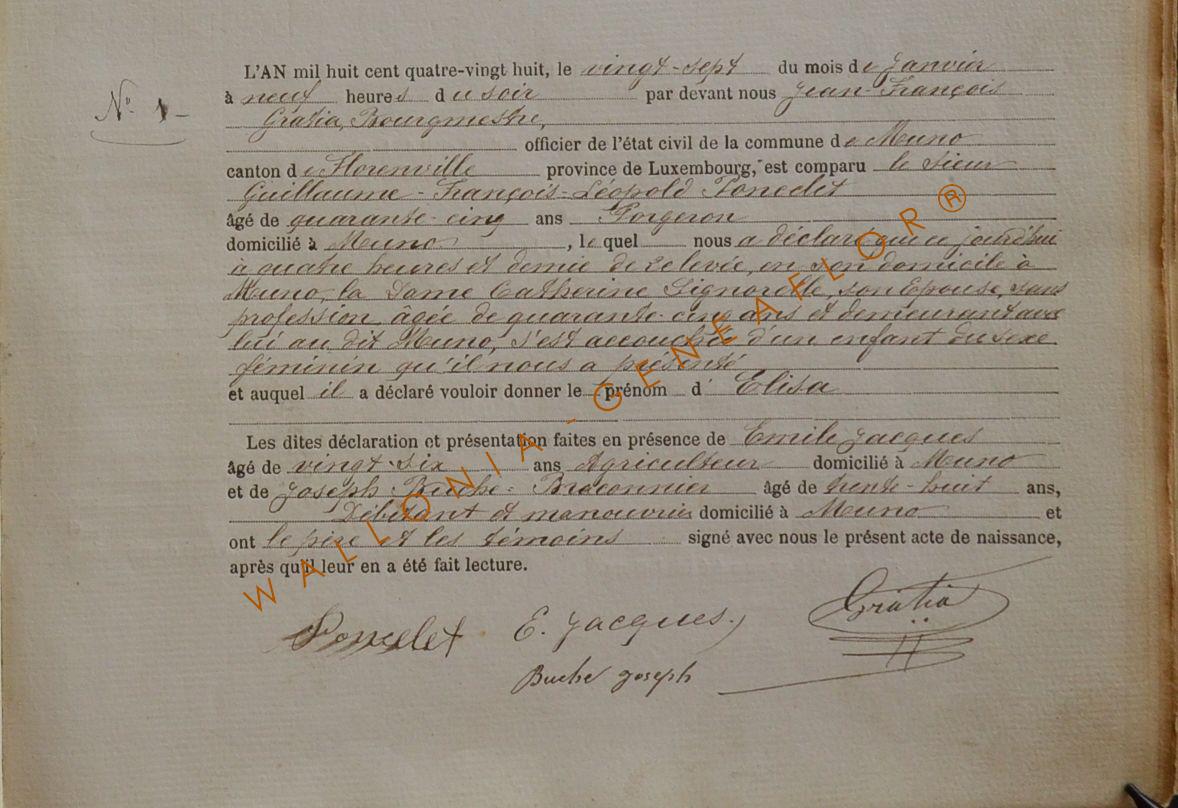 L'AN mil huit cent quatre-vingt huit, le vingt-sept du mois de Janvier
N° 1
à neuf heures du soir par devant nous Jean-François
Gratia, Bourgmestre,
officier de l'état civil de la commune de Muno
canton de Florenville province de Luxembourg, est comparu le Sieur
Guillaume-François-Léopold Poncelet
âgé de quarante-cinq ans Forgeron
domicilié à Muno, lequel nous a déclaré que ce jourd'hui
à quatre heures et demie de relevée, en son domicile à
Muno, la Dame Catherine Signorelle, son Epouse, sans
profession, âgée de quarante-cinq ans et demeurant avec
lui au dit Muno, s'est accouchée d'un enfant du sexe
féminin qu'il nous a présenté
et auquel il a déclaré vouloir donner le prénom d'Elisa
Les dites déclaration et présentation faites en présence de Emile Jacques
âgé de vingt-six ans Agriculteur domicilié à Muno
et de Joseph Buche-Braconnier âgé de trente-huit ans,
Débitant et manouvrier domicilié à Muno et
ont le père et les témoins signé avec nous le présent acte de naissance,
après qu'il leur en a été fait lecture.
Poncelet E. Jacques. Gratia
Buche Joseph
WALLONIA-GENEAFLOR®